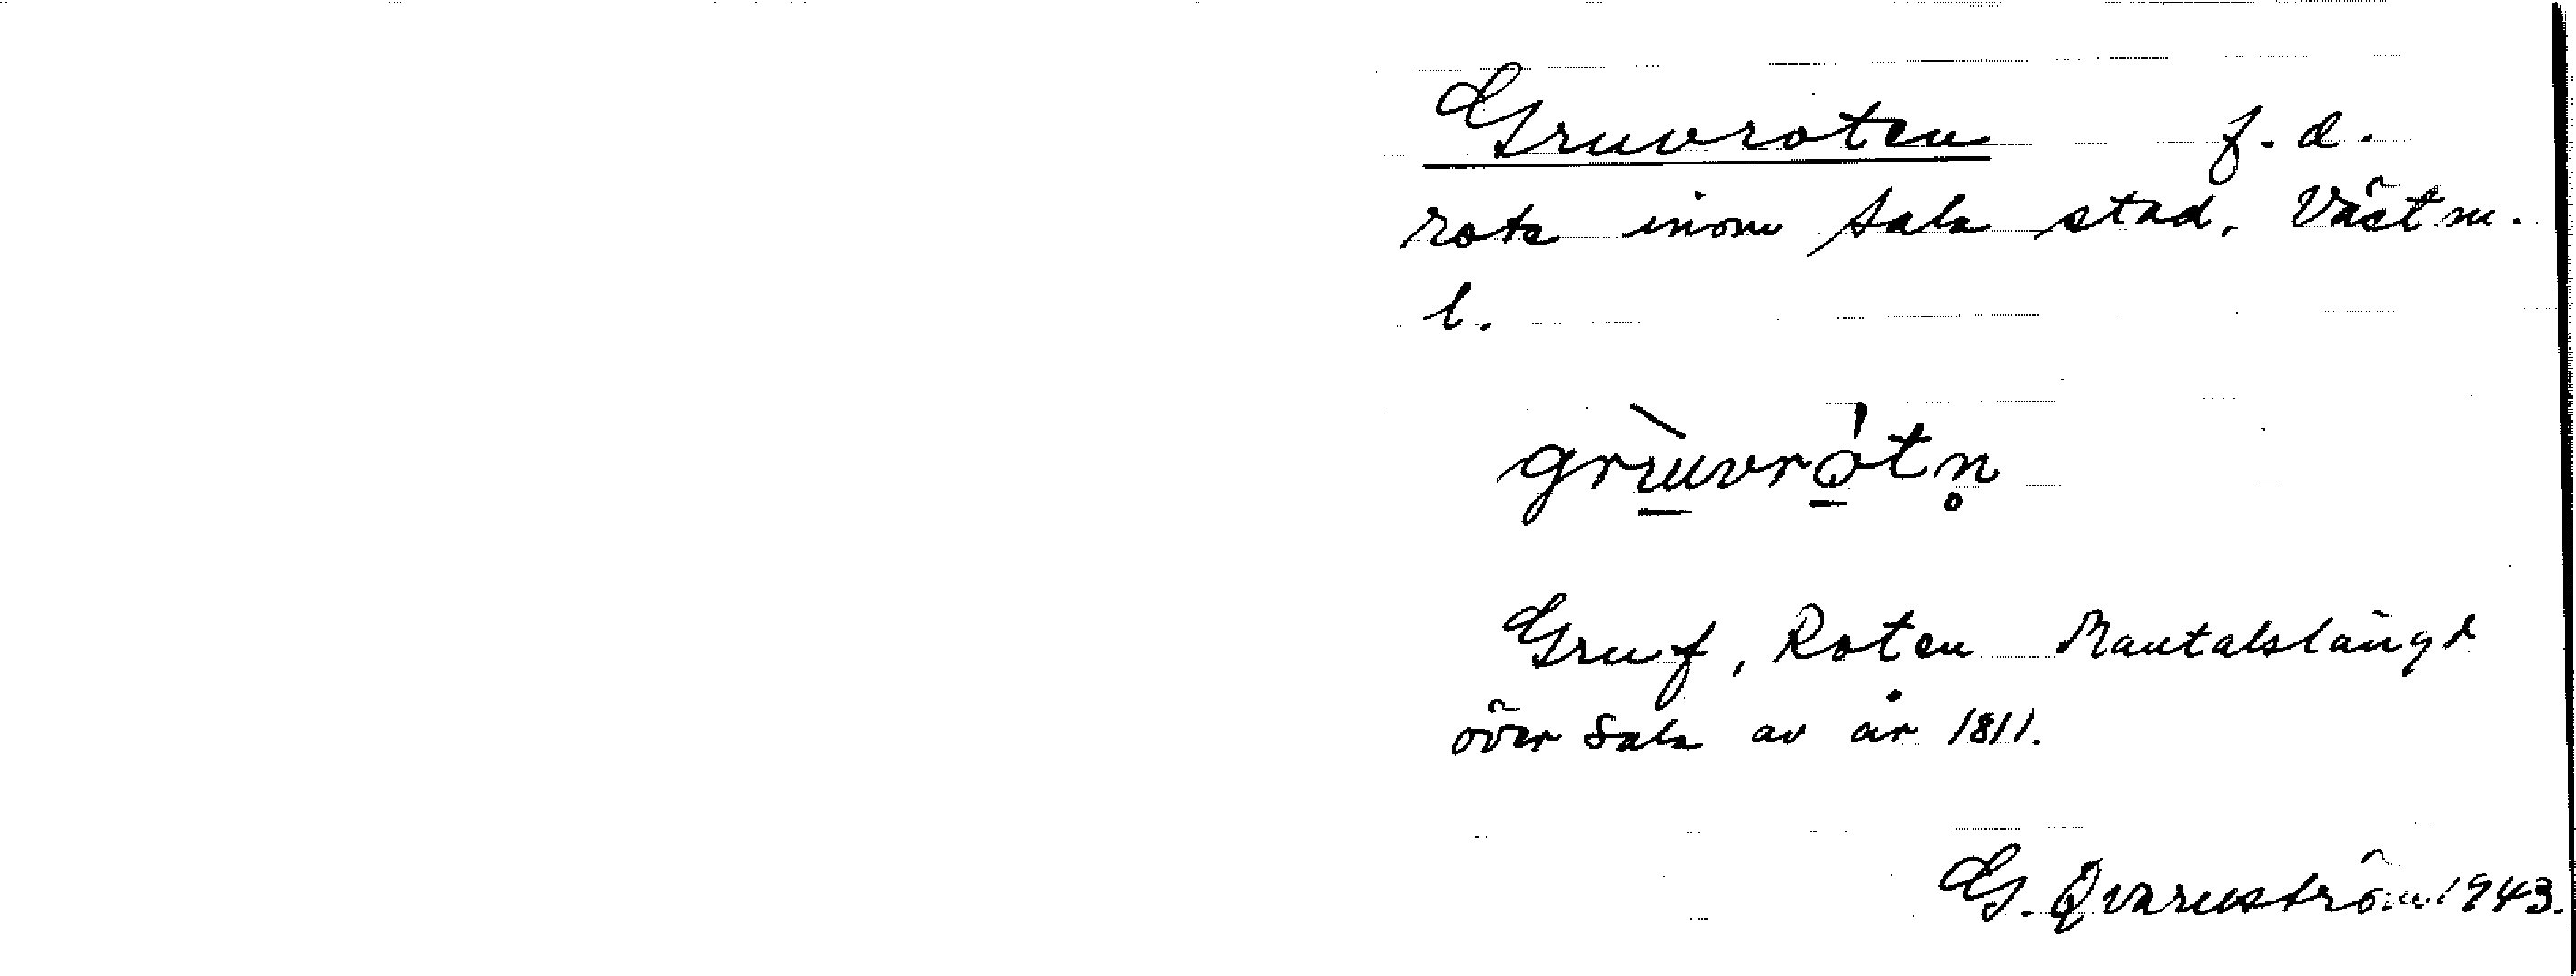 Gruvroten f. d.
rote inom Sala stad, Västm.
l.
grùvrótn̥
Gruf, Roten Mantalslängd
över Sala av år 1811.
G. Qvarnström 1943.